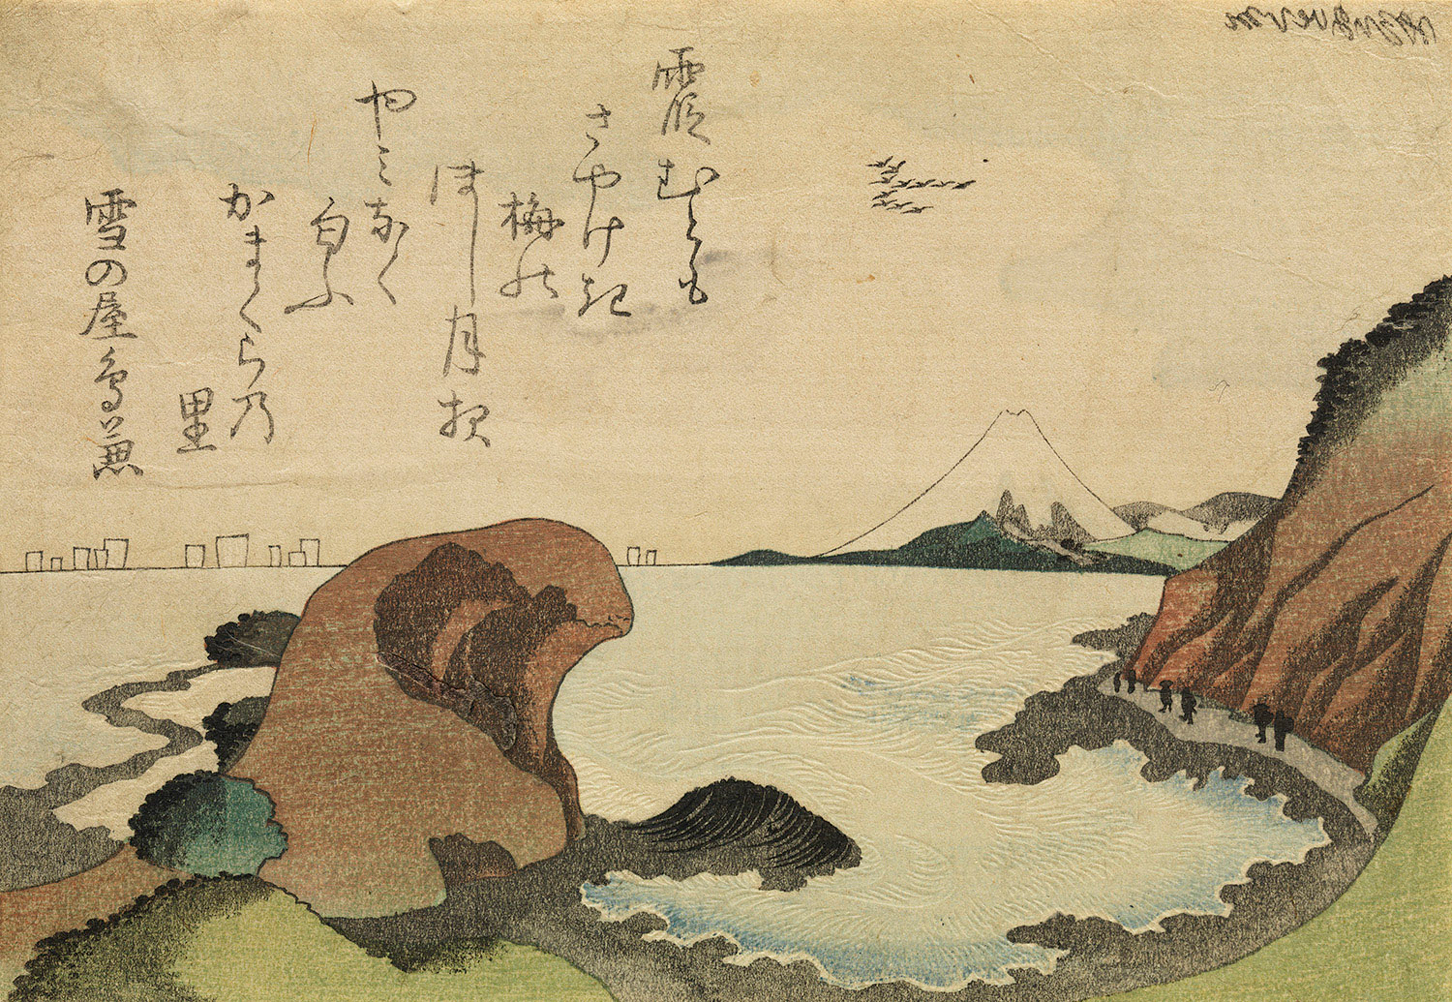 霞むとも
さやけき
梅の
ほし月夜
やミなく
匂ふ
かまくら乃
里
雪の屋